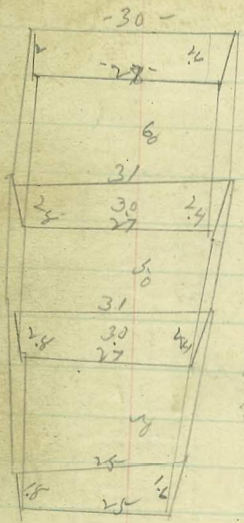 -30-
2 -27- 2
8
31
2.8 30 2.4
27
5.0
31
2.8 30 2.4
27
25
1.8 25